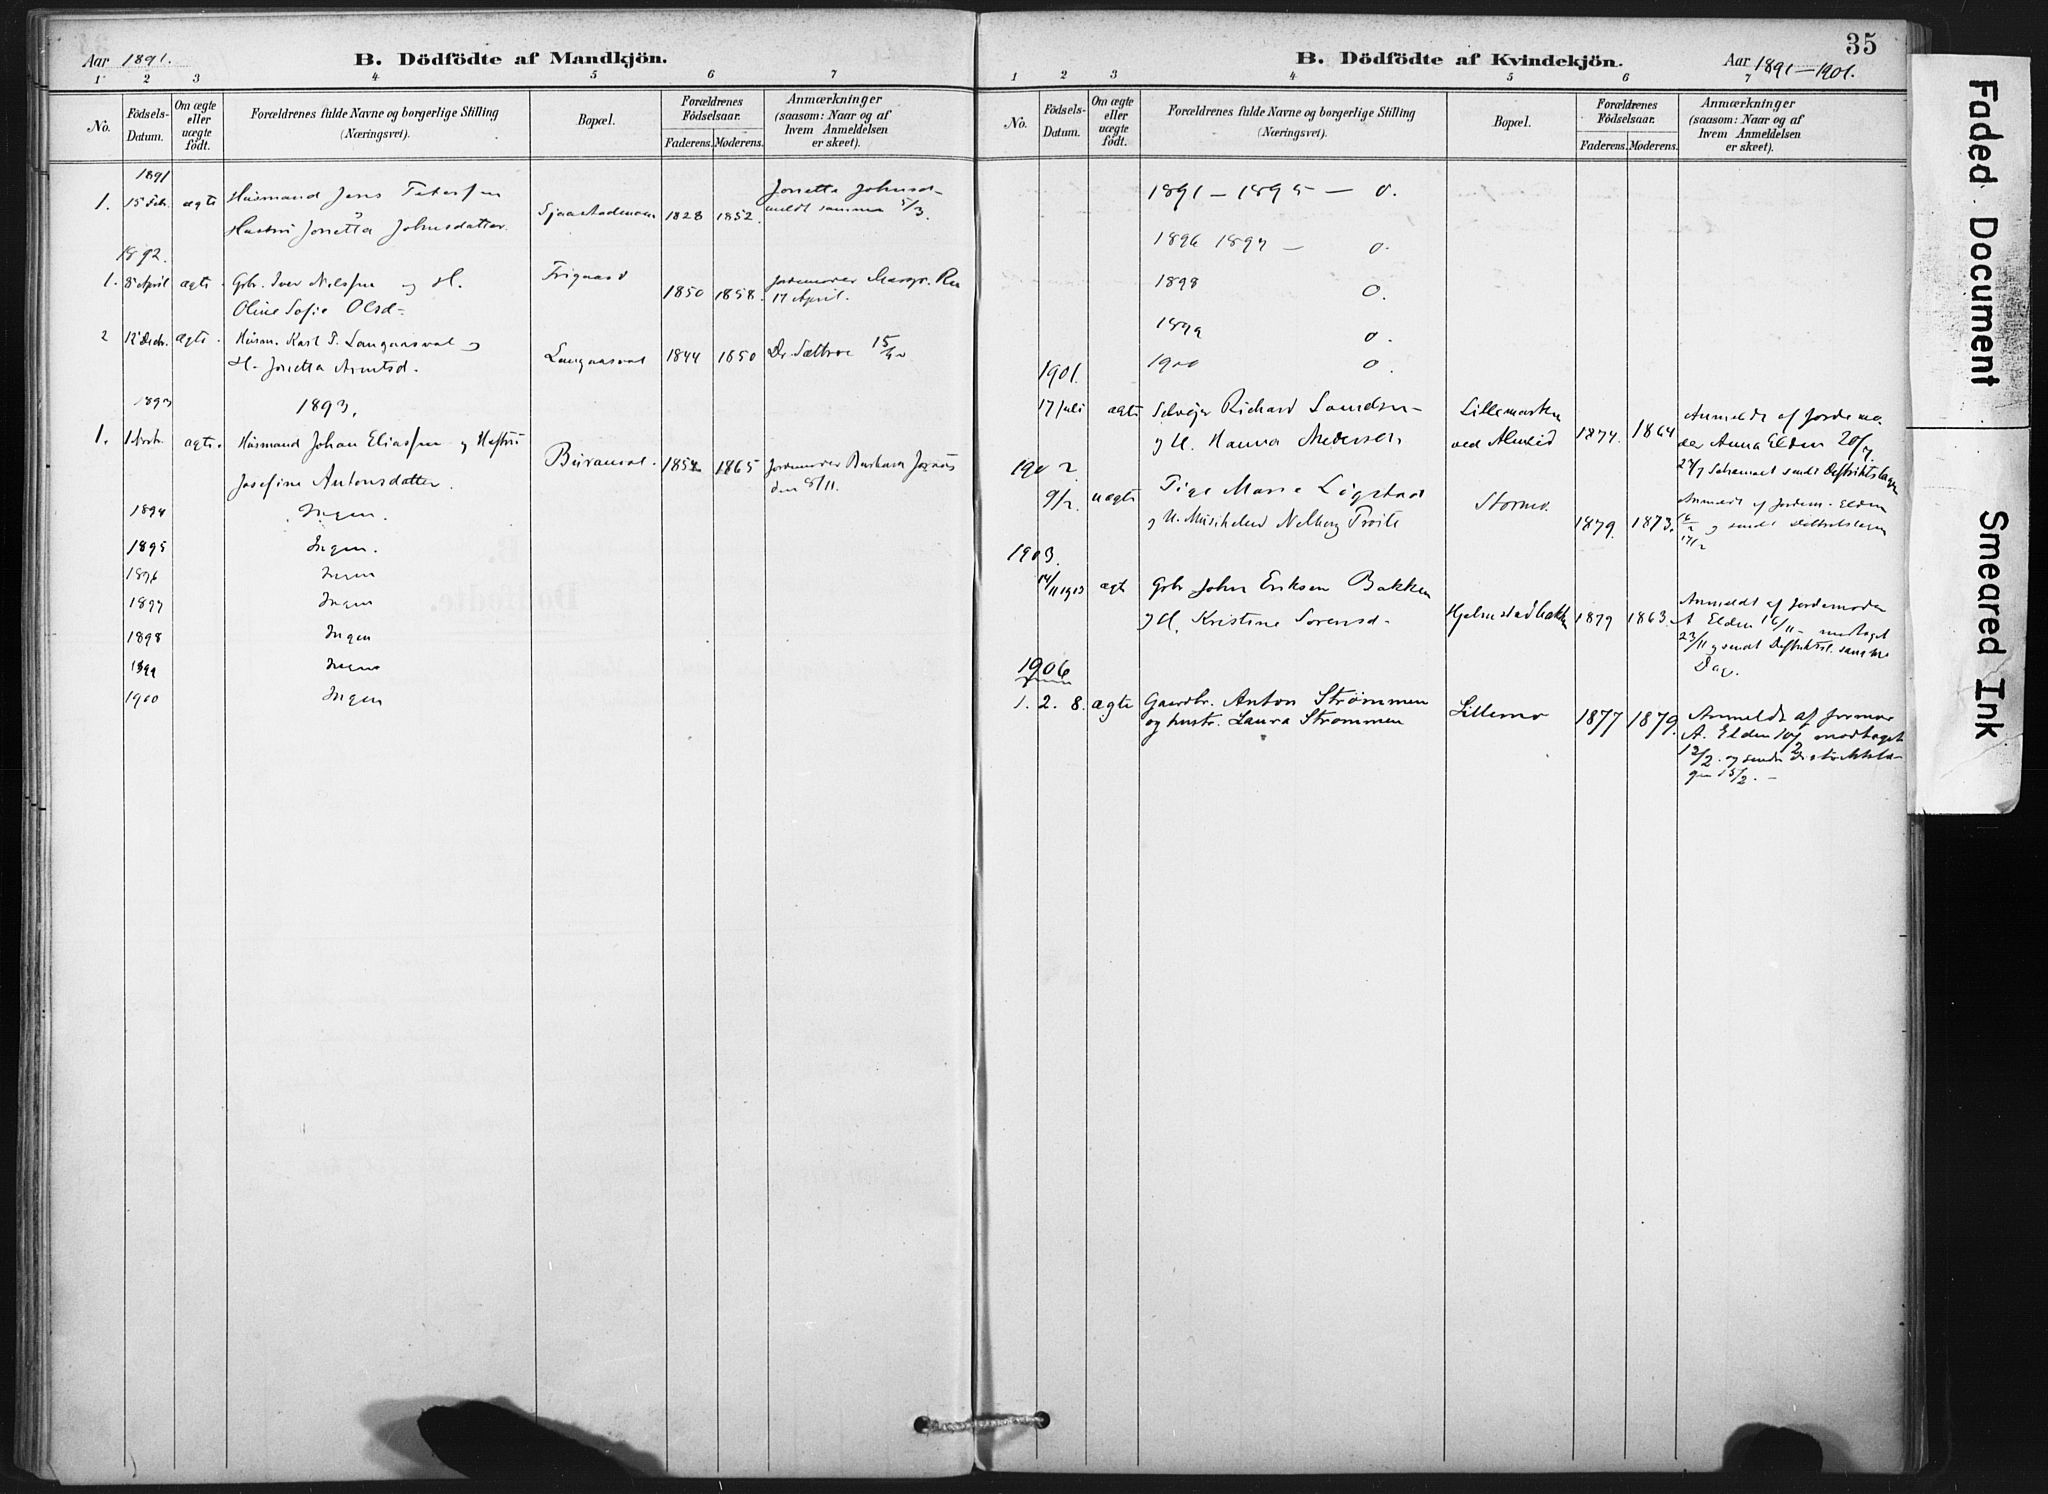 Aar 1891.
B. Dödfödte af Mandkjön.
1 2 3 4 5 6 7
No.
Födsels-Datum.
Om ægte eller uægte födt.
Forældrenes fulde Navne og borgerlige Stilling
(Næringsvei).
Bopæl.
Forældrenes Födselsaar.
Faderens. Moderens.
Anmærkninger
(saasom: Naar og af
hvem Anmeldelsen
er skeet).
1891
1. 15 Febr. ægte Husmand Jens Petersen 1828 1852. Jonetta Johnsd-
Hustru Jonetta Johnsdatter. meldt samme 5/3.
1892.
1. 8 April ægte Gbr. Iver Nilssen og H. Frigaard 1850 1858. Jordemoder
Oline Sofie Olsd- 17 April.
2 12 Decbr. ægte. Husm. Karl P. Langaasval og Langaasval 1844 1850 Dr. Sættre 15/12
H. Jonetta Arntsd.
1893 1893.
1. 1 Novbr. ægte. Husmand Johan Eliassen og Hustru 1865 Jordemoder Barbara
Josefine Antonsdatter. den 8/11.
1894 Ingen.
1895 Ingen.
1896 Ingen
1897 Ingen
1898 Ingen
1899 Ingen
1900 Ingen
35
B. Dödfödte af Kvindekjön.
Aar 1891-1901.
1 2 3 4 5 6 7
No.
Födsels-Datum.
Om ægte eller uægte födt.
Forældrenes fulde Navne og borgerlige Stilling
(Næringsvei).
Bopæl.
Forældrenes Födselsaar.
Faderens. Moderens.
Anmærkninger
(saasom: Naar og af
hvem Anmeldelsen
er skeet).
1891 - 1895 - 0.
1896 1897 - 0.
1898 0.
1899 0.
1900 0.
1901.
17 Juli ægte Selvejer Richard Lillemarken 1874. 1864 Anmeldt af Jordemo-
og H. Hanna Andersen ved der Anna Elden 20/7.
27/7 Schemaet sendt Distriktslægen
1902
9/2. uægte Pige Marie Løgstad Stormo. 1879. 1873. Anmeldt af Jordem. Elden
og U. og sendt Distriktslægen
1903.
14/11 1903 ægt Gbr John Eriksen Bakken Hjelmstadbakken 1879 1863. Anmeldt af Jordemoder
og H. Kristine Sorensd- A Elden 16/11 - modtaget
23/11 og sendt Distriktsl. samme
Dag.
1906
1. 2. 8. ægte Gaardbr. Anton Strømmen Lillemo 1877 1879. Anmeldt af
og hustr. Laura Strømmen A. Elden modtaget
12/2. og sendt Distriktslæ-
gen 13/2. -
Faded Document
Smeared Ink